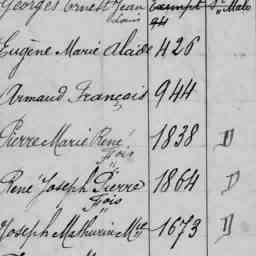 Georges Ernest Jean Exempt St Malo
Louis 94
Eugène Marie Alcide 426
Armand François 944
Pierre Marie René 1838 D
Fois
René Joseph Pierre 1864 D
Fois
Joseph Mathurin Mie 1673 D